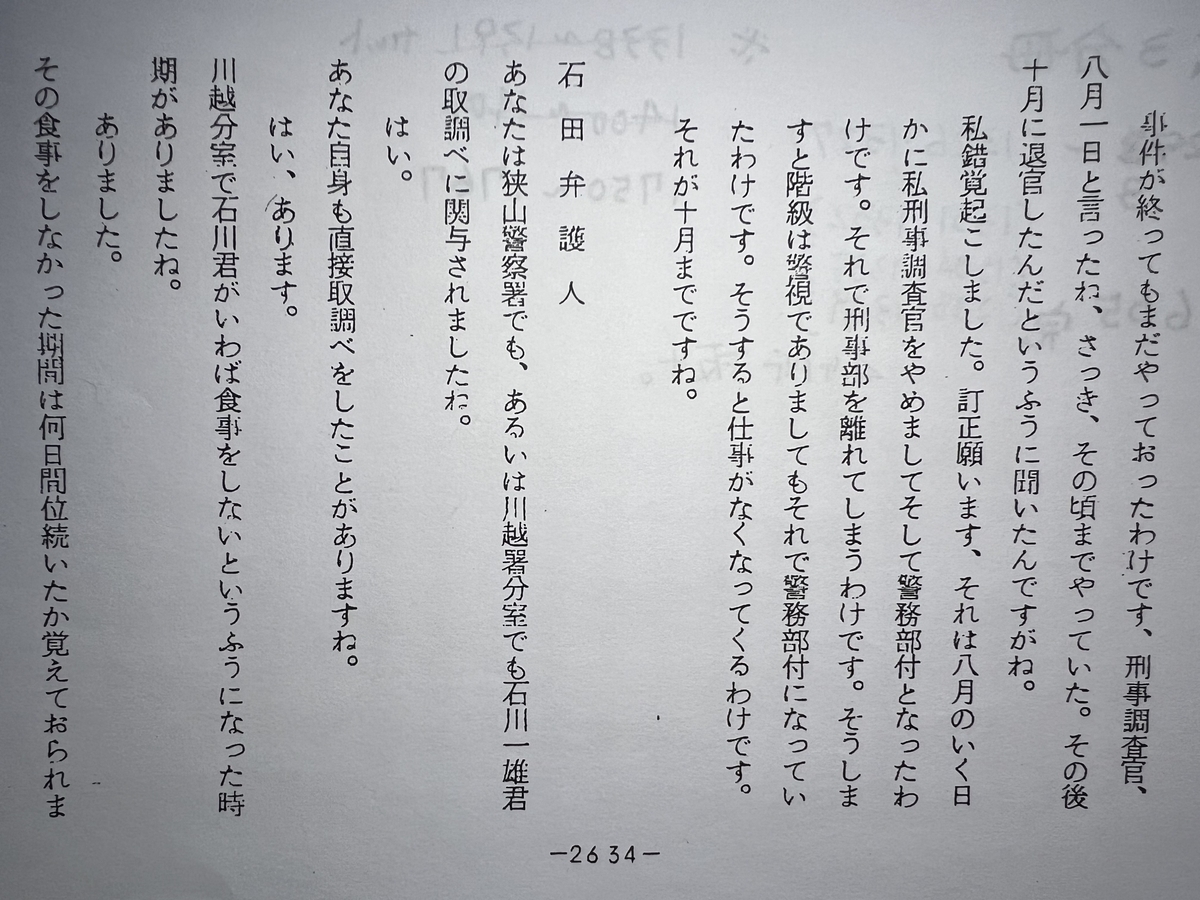 事件が終ってもまだやっておったわけです、刑事調査官、
八月一日と言ったね、さっき、その頃までやっていた。その後
十月に退官したんだというふうに聞いたんですがね。
私錯覚起こしました。訂正願います、それは八月のいく日
かに私刑事調査官をやめましてそして警務部付となったわ
けです。それで刑事部を離れてしまうわけです。そうしま
すと階級は警視でありましてもそれで警務部付になってい
たわけです。そうすると仕事がなくなってくるわけです。
それが十月までですね。
石田弁護人
あなたは狭山警察署でも、あるいは川越署分室でも石川一雄君
の取調べに関与されましたね。
はい。
あなた自身も直接取調べをしたことがありますね。
はい、あります。
川越分室で石川君がいわば食事をしないというふうになった時
期がありましたね。
ありました。
その食事をしなかった期間は何日間位続いたか覚えておられま
—2634—